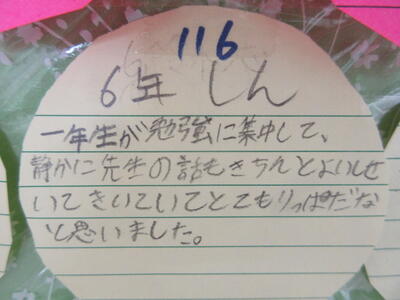 116
6年 しん
一年生が勉強に集中して、
静かに先生の話もきちんとよいしせ
いできいていてとてもりっぱだな
と思いました。